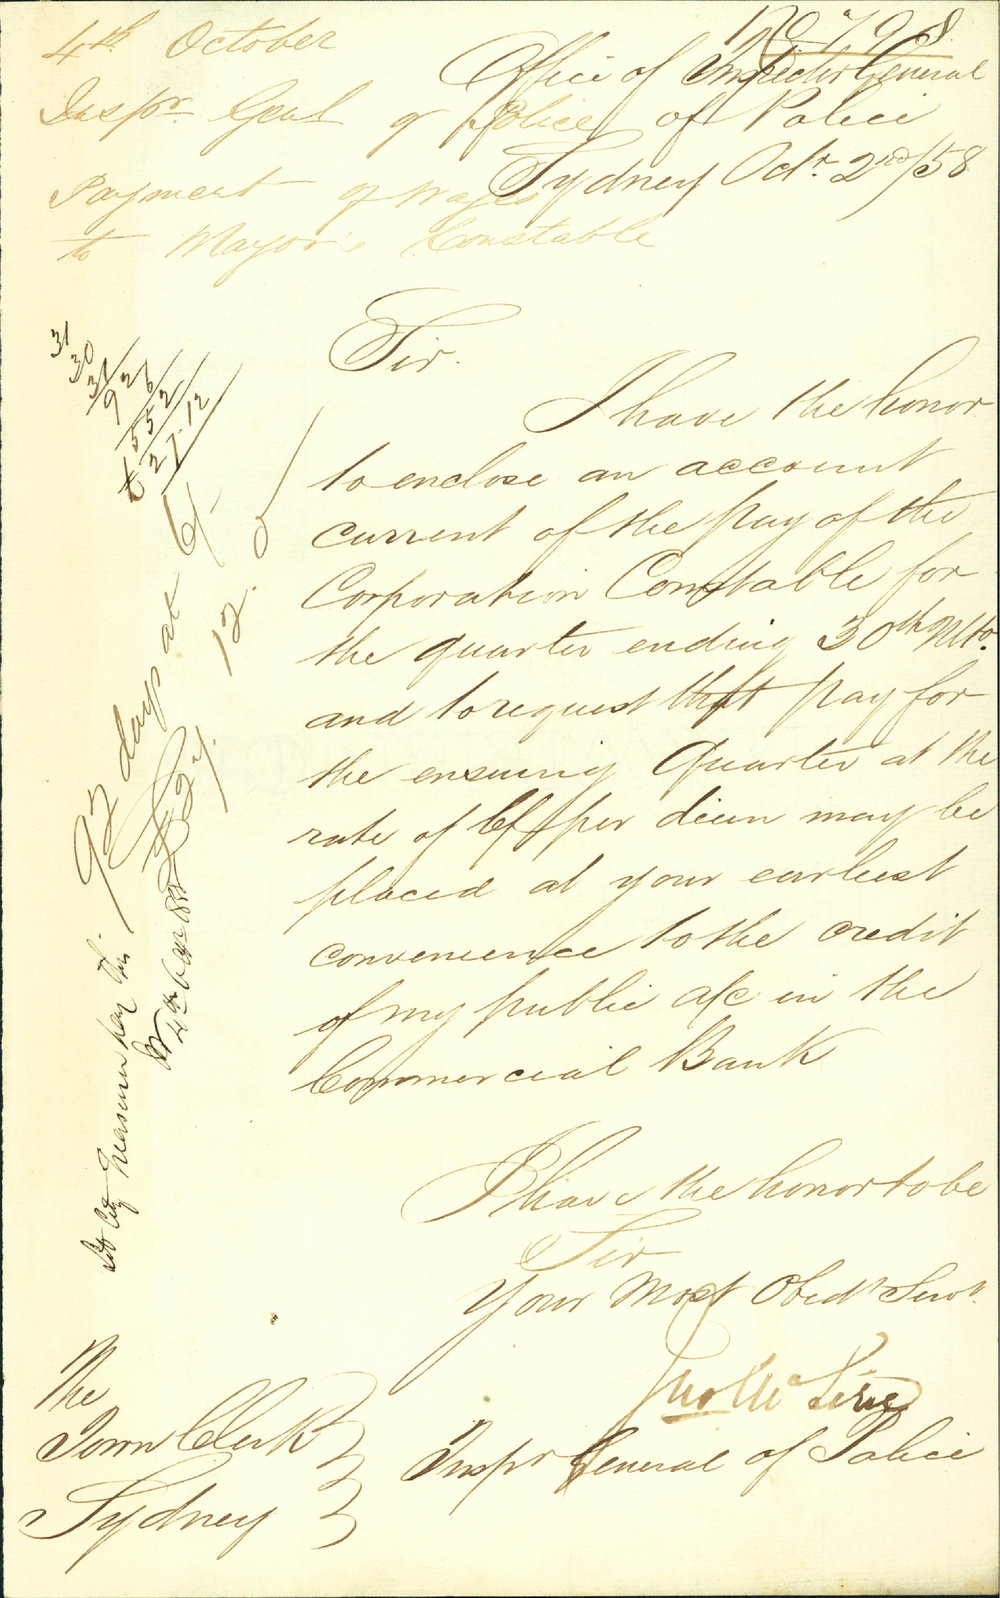 4th October
Inspr. Genl of Police
Payment of Wages
to Mayor's Constable
No 798
Office of Inspector General
of Police
Sydney Octr. 2nd/58
Sir.
I have the honor
to enclose an account
current of the pay of the
Corporation Constable for
the quarter ending 30th Ulto.
and to request that pay for
the ensuing Quarter at the
rate of 6/ per diem may be
placed at your earliest
convenience to the credit
of my public a/c in the
Commercial Bank
I have the honor to be
Sir
Your Most Obedt Servt.
Jno Mc Lerie
Inspr General of Police
The
Town Clerk
Sydney
31
30
31
92
6
552
£27.12
92 days at 6/-
£27. 12. 0
Let City Treasurer pay this
4th Octr 1858